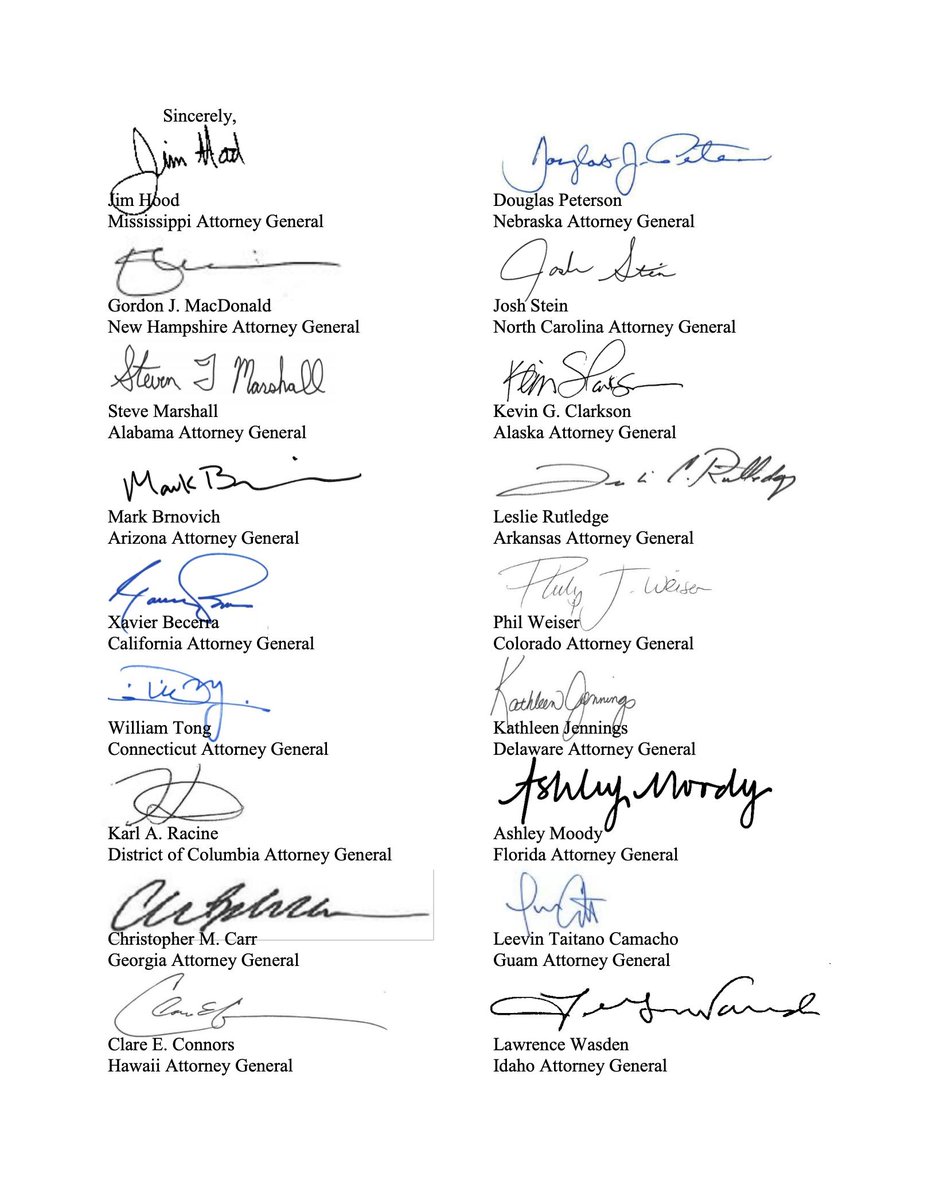 Sincerely,
Jim Hood
Jim Hood
Mississippi Attorney General
Douglas J. Peterson
Douglas Peterson
Nebraska Attorney General
Gordon J. MacDonald
New Hampshire Attorney General
Josh Stein
Josh Stein
North Carolina Attorney General
Steven T Marshall
Steve Marshall
Alabama Attorney General
Kevin G. Clarkson
Alaska Attorney General
Mark B
Mark Brnovich
Arizona Attorney General
C. Rutledge
Leslie Rutledge
Arkansas Attorney General
Xavier Becerra
California Attorney General
Philip J. Weiser
Phil Weiser
Colorado Attorney General
William Tong
Connecticut Attorney General
Kathleen Jennings
Kathleen Jennings
Delaware Attorney General
Karl A. Racine
District of Columbia Attorney General
Ashley Moody
Ashley Moody
Florida Attorney General
Christopher M. Carr
Georgia Attorney General
Leevin Taitano Camacho
Guam Attorney General
Clare E. Connors
Hawaii Attorney General
Lawrence Wasden
Idaho Attorney General